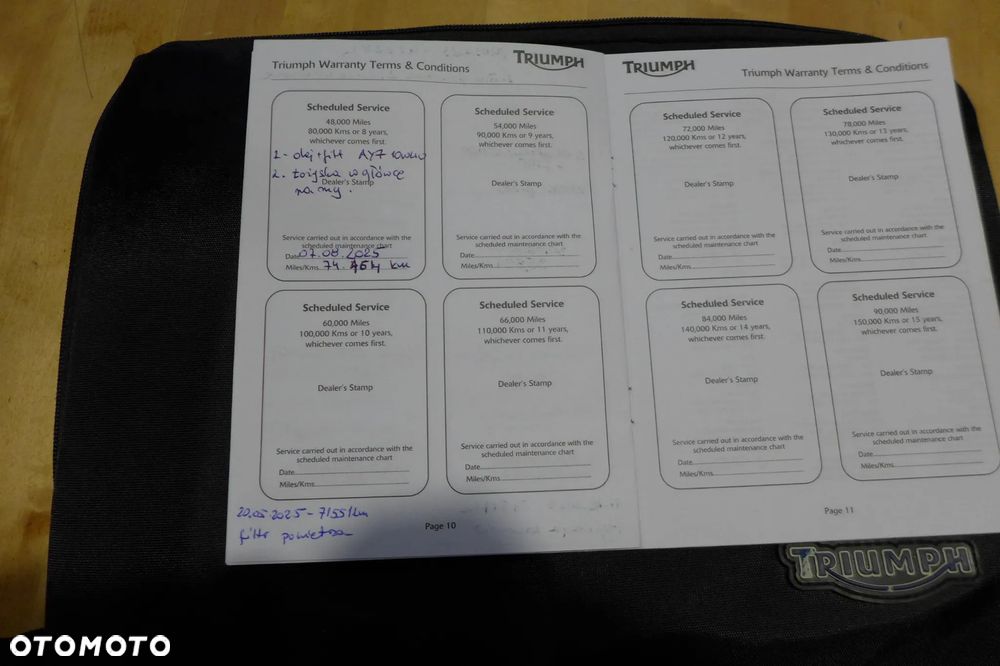 Triumph Warranty Terms & Conditions
TRIUMPH
Scheduled Service
48,000 Miles
80,000 Kms or 8 years,
whichever comes first.
1- olej + filt
2. łożyska w główce
Dealer's Stamp
na my.
Service carried out in accordance with the
scheduled maintenance chart
Date 07.08.2025
Miles/Kms 74. km
Scheduled Service
54,000 Miles
90,000 Kms or 9 years,
whichever comes first.
Dealer's Stamp
Service carried out in accordance with the
scheduled maintenance chart
Date
Miles/Kms
Scheduled Service
60,000 Miles
100,000 Kms or 10 years,
whichever comes first.
Dealer's Stamp
Service carried out in accordance with the
scheduled maintenance chart
Date
Miles/Kms
Scheduled Service
66,000 Miles
110,000 Kms or 11 years,
whichever comes first.
Dealer's Stamp
Service carried out in accordance with the
scheduled maintenance chart
Date
Miles/Kms
20.05.2025 - 71551km
filtr powietrza
Page 10
TRIUMPH
Triumph Warranty Terms & Conditions
Scheduled Service
72,000 Miles
120,000 Kms or 12 years,
whichever comes first.
Dealer's Stamp
Service carried out in accordance with the
scheduled maintenance chart
Date
Miles/Kms
Scheduled Service
78,000 Miles
130,000 Kms or 13 years,
whichever comes first.
Dealer's Stamp
Service carried out in accordance with the
scheduled maintenance chart
Date
Miles/Kms
Scheduled Service
84,000 Miles
140,000 Kms or 14 years,
whichever comes first.
Dealer's Stamp
Service carried out in accordance with the
scheduled maintenance chart
Date
Miles/Kms
Scheduled Service
90,000 Miles
150,000 Kms or 15 years,
whichever comes first.
Dealer's Stamp
Service carried out in accordance with the
scheduled maintenance chart
Date
Miles/Kms
Page 11
TRIUMPH
OTOMOTO